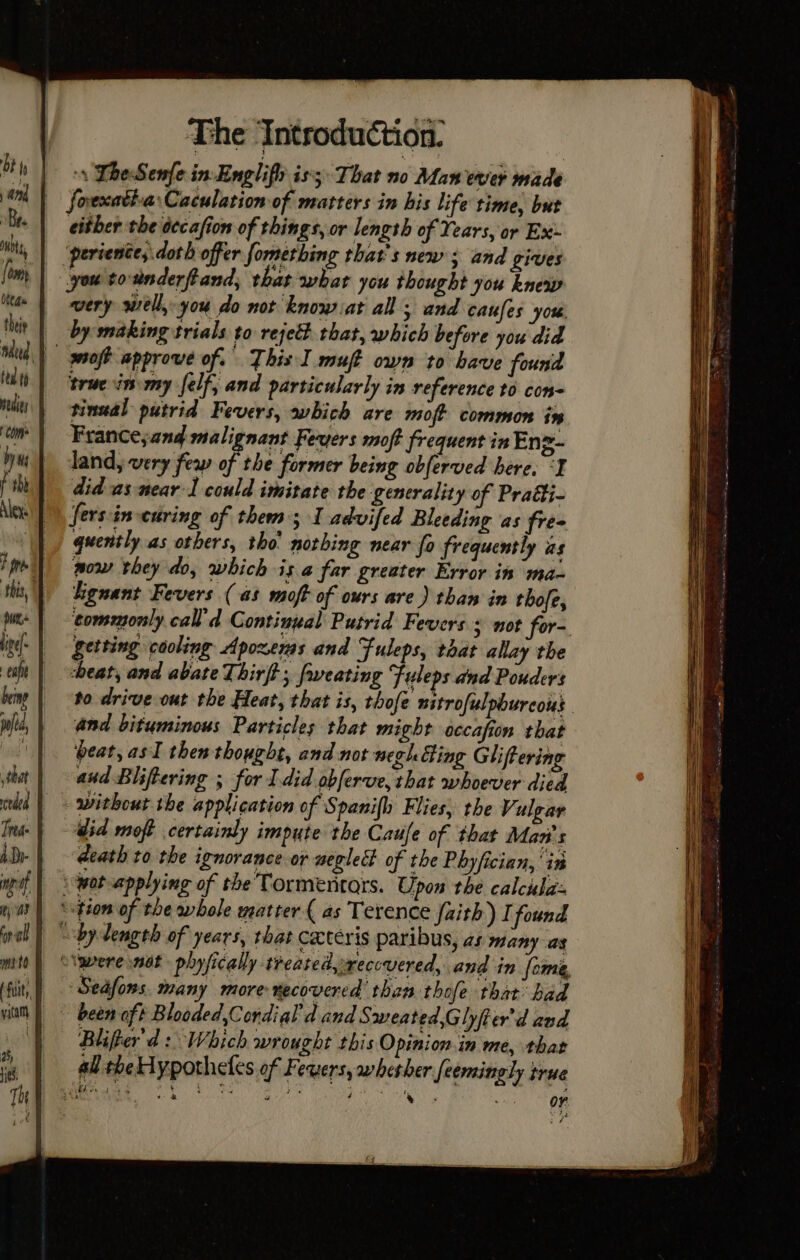 The Introduction.
The Senſe in Engliſh is; That no Man ever made
ſo exact a Caculation of matters in his life time, but
either the occaſion of things, or length of Years, or Ex-
perience, doth offer ſomething that's new; and gives
you to underſtand, that what you thought you knew
very well, you do not know at all; and cauſes you
by making trials to reject that, which before you did
moſt approve of. This I muſt own to have found
true in my ſelf, and particularly in reference to con-
tinual putrid Fevers, which are moſt common in
France, and malignant Fevers moſt frequent in Eng-
land, very few of the former being obſerved here. I
did as near I could imitate the generality of Practi-
ſers in curing of them; I adviſed Bleeding as fre-
quently as others, tho' nothing near ſo frequently as
now they do, which is a far greater Error in ma-
lignant Fevers (as moſt of ours are) than in thoſe,
commonly call'd Continual Putrid Fevers; not for-
getting cooling Apozems and Juleps, that allay the
heat, and abate Thirſt; ſweating Juleps and Pouders
to drive out the Heat, that is, thoſe nitroſulphureous
and bituminous Particles that might occaſion that
heat, as I then thought, and not neglecting Gliſtering
and Bliſtering; for I did obſerve, that whoever died
without the application of Spaniſh Flies, the Vulgar
did moſt certainly impute the Cauſe of that Man's
death to the ignorance or neglect of the Phyſician, in
not applying of the Tormentors. Upon the calcula-
tion of the whole matter (as Terence ſaith) I found
by length of years, that cæteris paribus, as many as
were not phyſically treated, recovered, and in ſome
Seaſons many more recovered than thoſe that had
been oft Blooded, Cordial'd and Sweated, Glyſter'd and
Bliſter'd: Which wrought this Opinion in me, that
all the Hypotheſes of Fevers, whether ſeemingly true
or